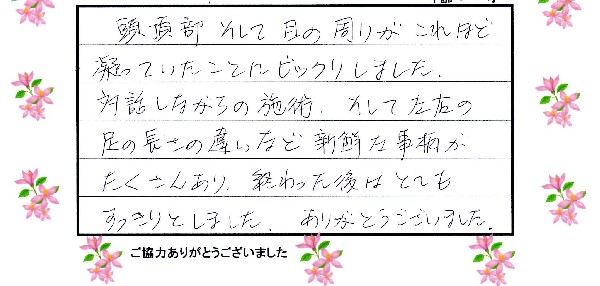 頭頂部 そして目の周りがこれほど
凝っていたことにビックリしました.
対話しながらの施術. そして左右の
足の長さの違いなど新鮮な事柄が
たくさんあり. 終わった後はとても
すっきりとしました. ありがとうございました.
ご協力ありがとうございました